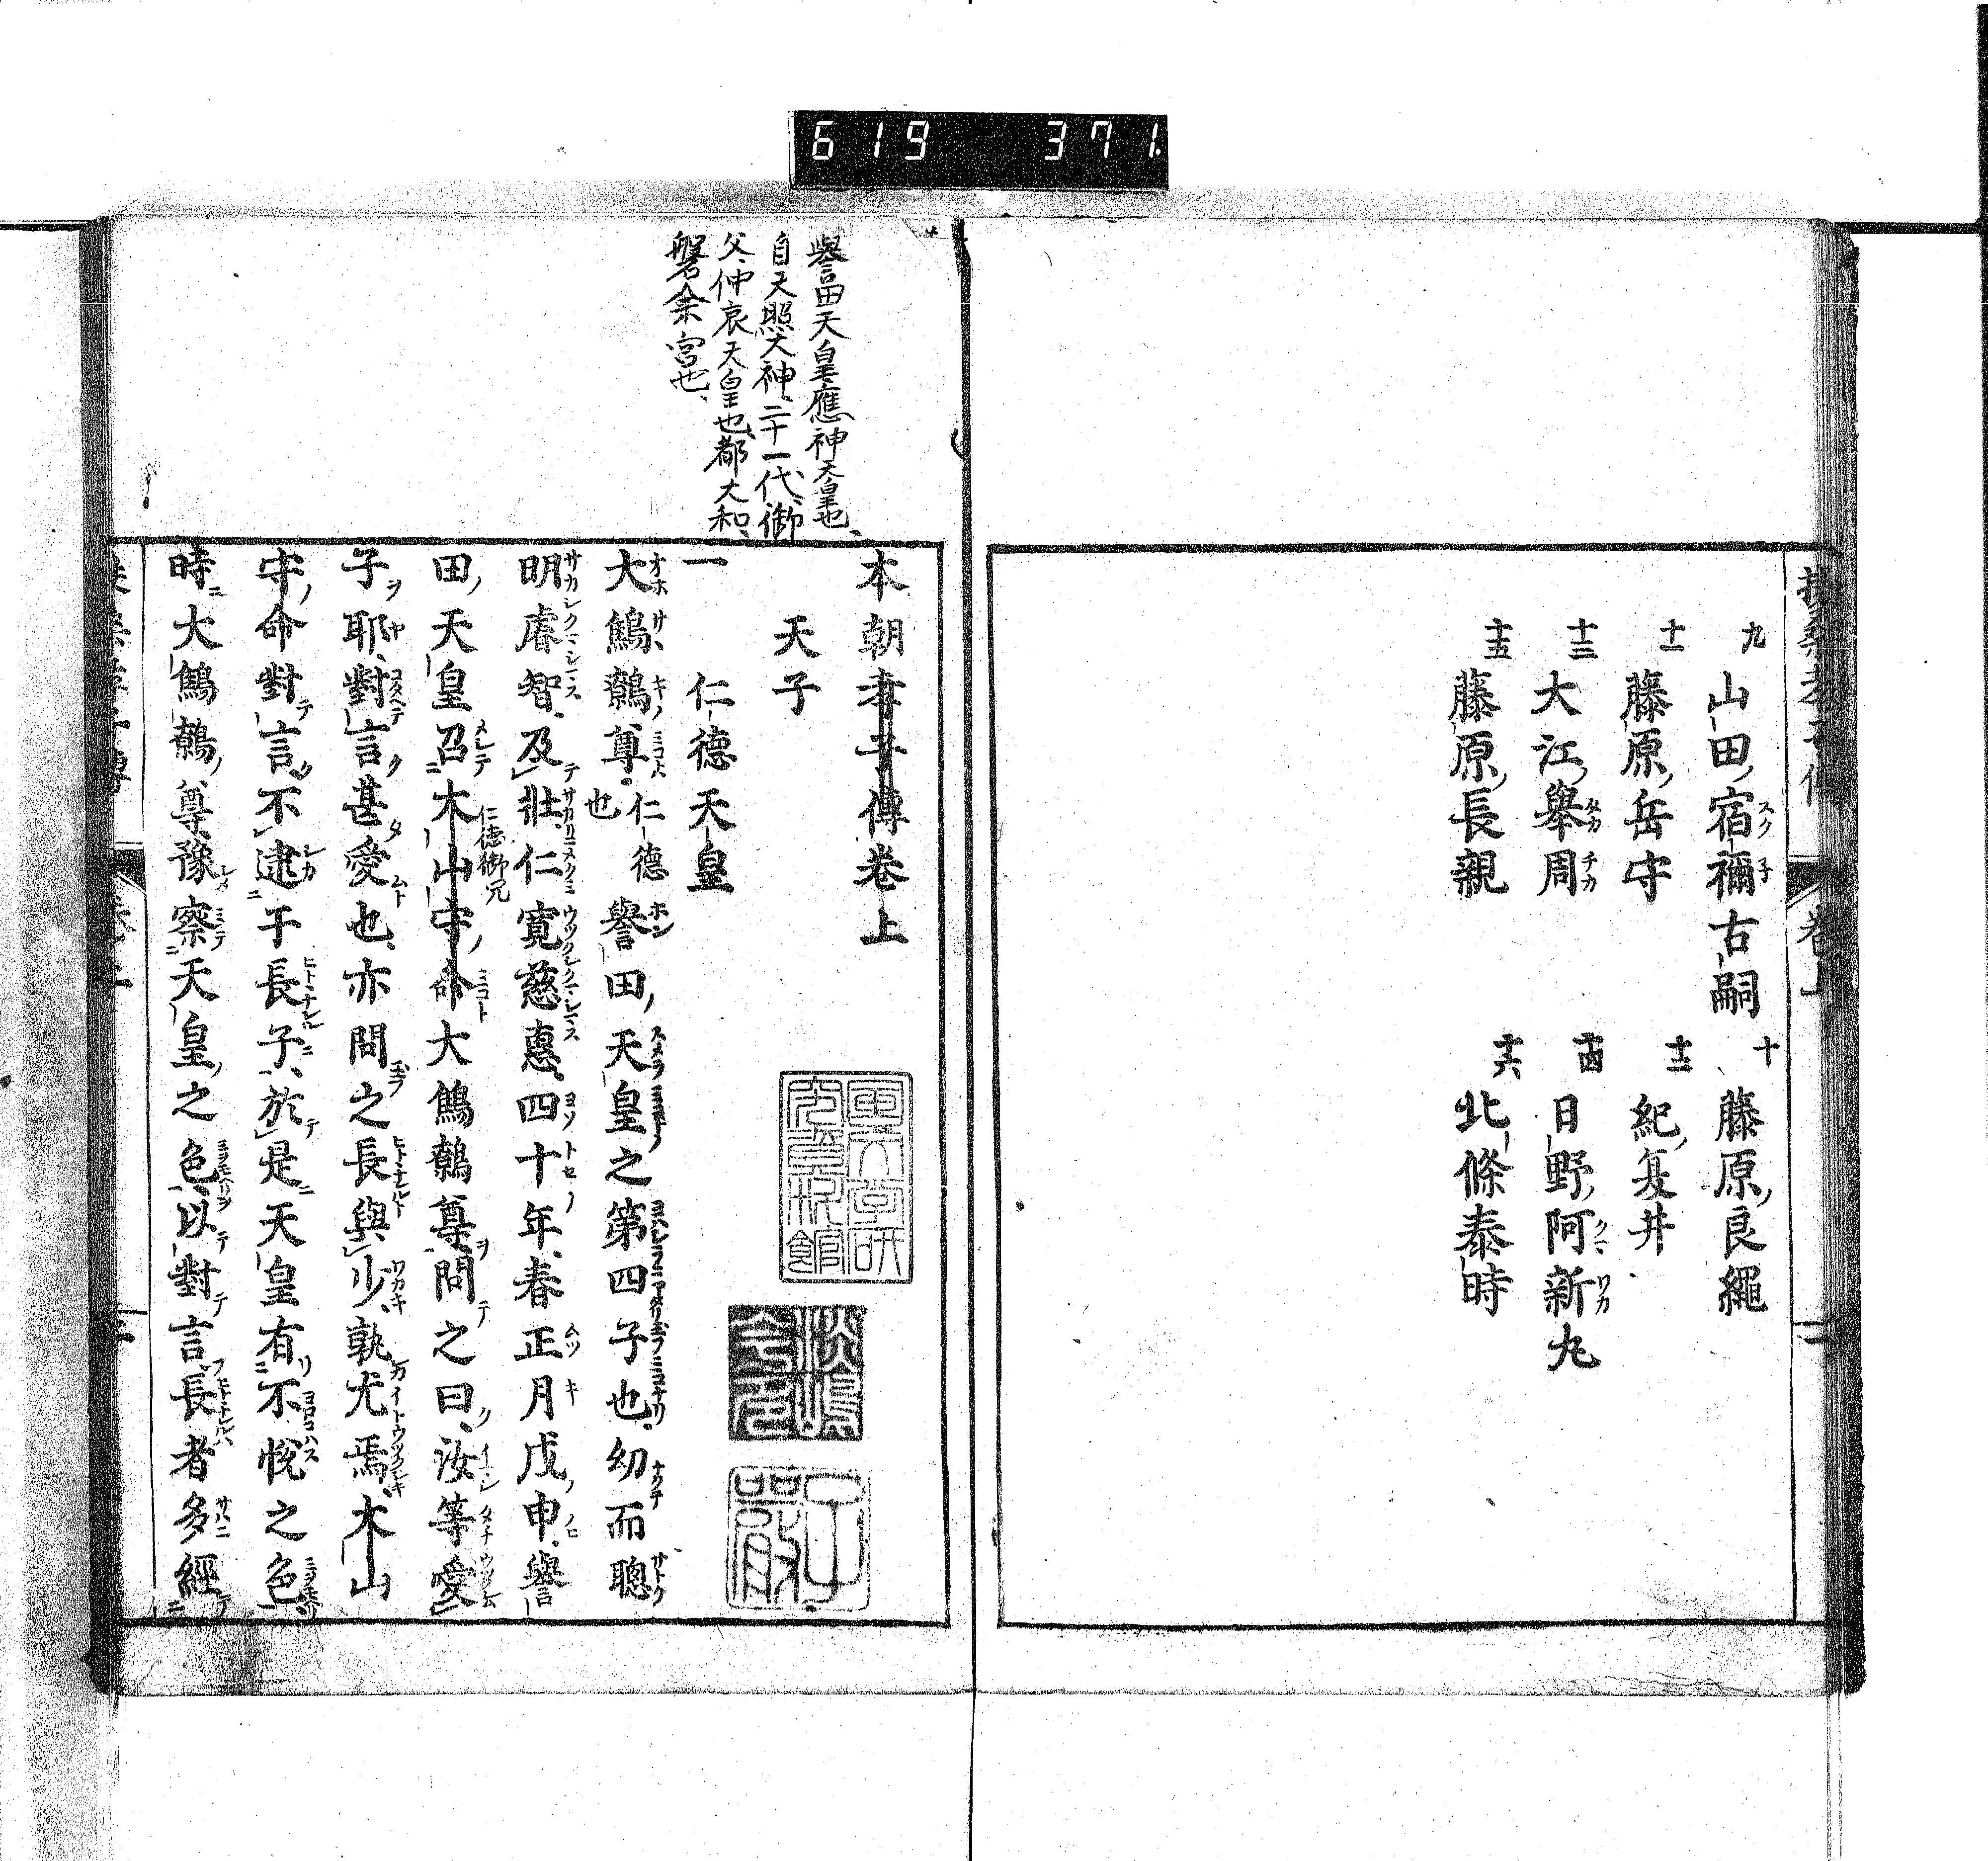 619 371.
九 山田宿禰古嗣 十 藤原良繩
十一 藤原岳守 十二 紀夏井
十三 大江舉周 十四 日野阿新丸
十五 藤原長親 十六 北條泰時
譽田天皇應神天皇也、
自天照大神二十一代、御
父、仲哀天皇也、都大和、
磐余宮也、
本朝孝子傳卷上
天子
一 仁德天皇
大鷦鷯尊仁德也譽田天皇之第四子也幼而聰
明睿智、及壯仁寬慈惠四十年春正月戊申譽
田天皇召大山守命大鷦鷯尊問之曰、汝等愛
仁德御兄
子耶、對言甚愛也、亦問之長與少孰尤焉、大山
守命對言不逮于長子、於是天皇有不悅之色
時大鷦鷯尊豫察天皇之色、以對言長者多經